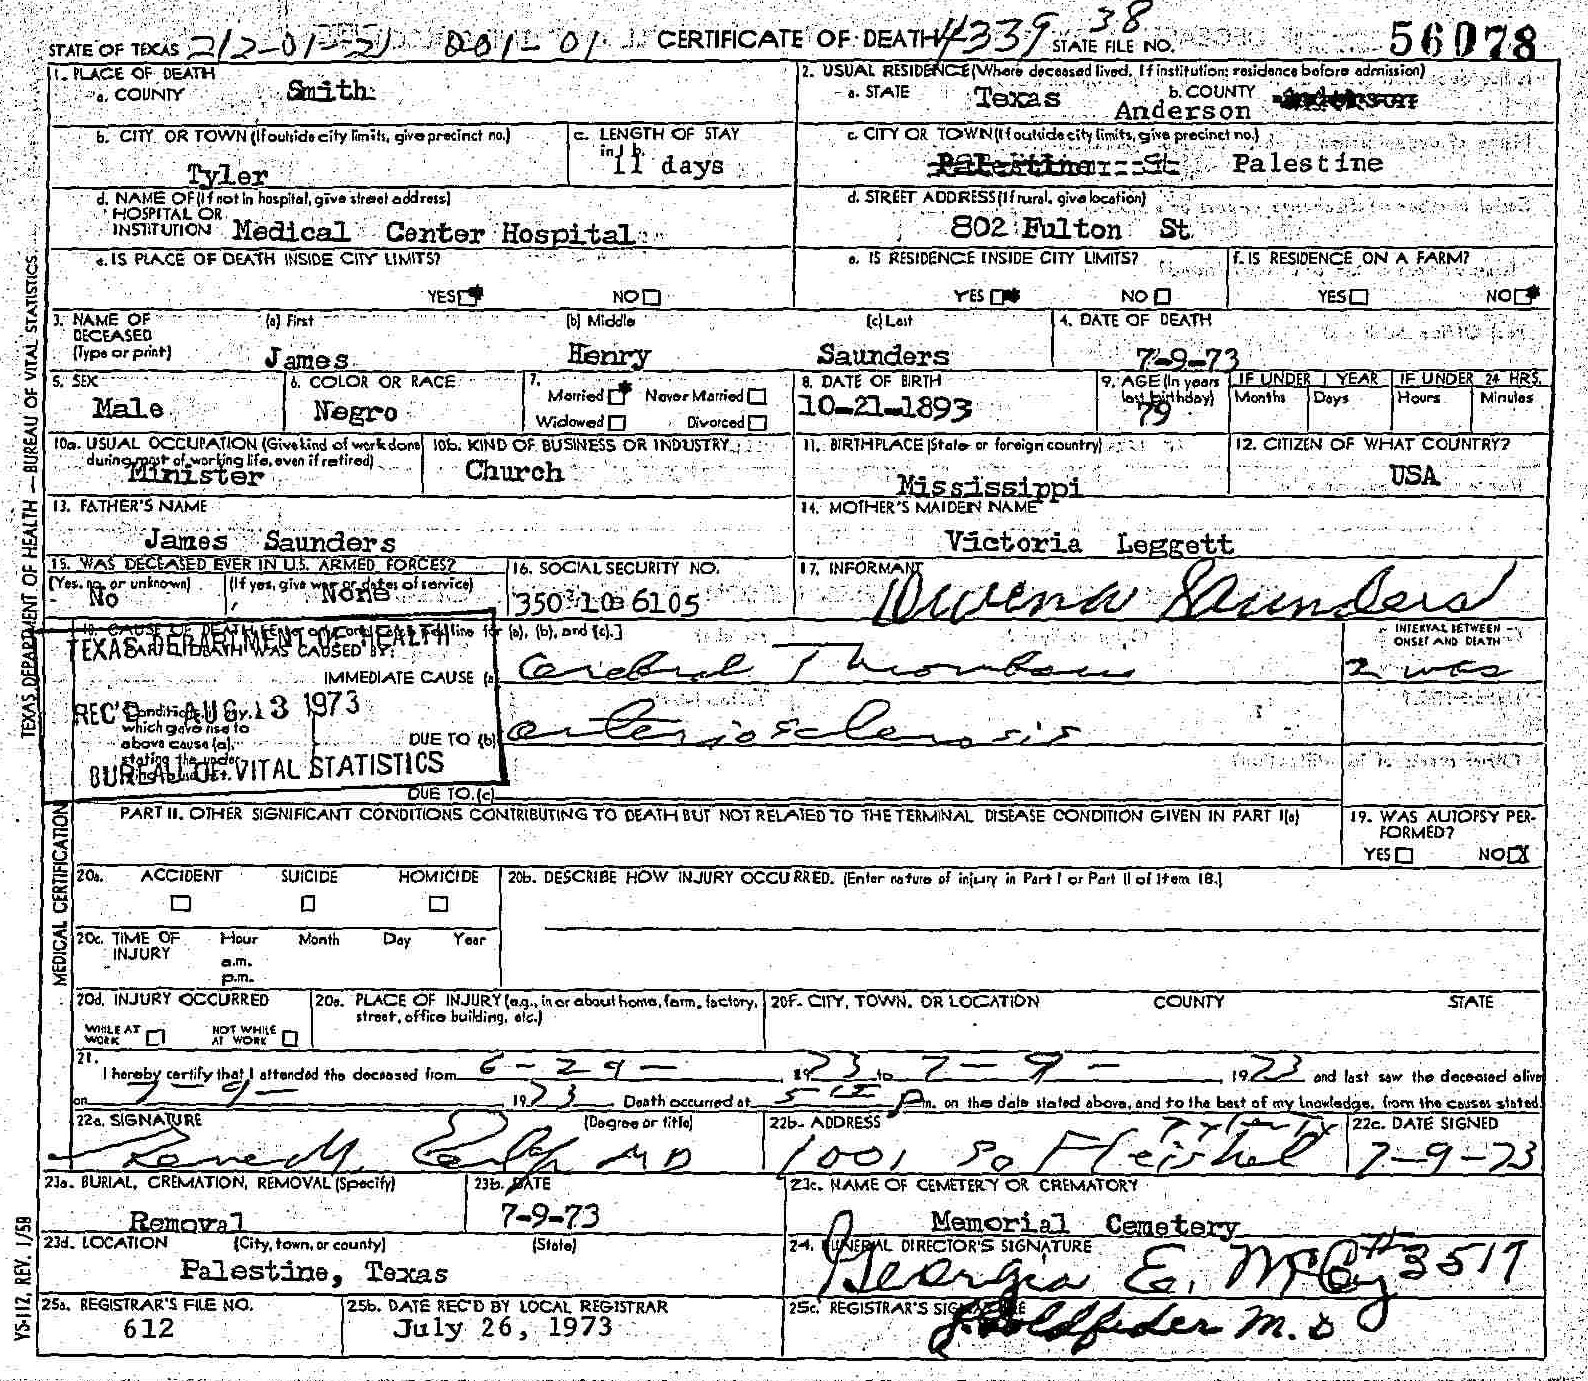 STATE OF TEXAS 212-01-21 001-01 CERTIFICATE OF DEATH 4339 38 STATE FILE NO. 56078
1. PLACE OF DEATH
a. COUNTY Smith
2. USUAL RESIDENCE (Where deceased lived. If institution: residence before admission)
a. STATE Texas b. COUNTY Anderson
b. CITY OR TOWN (If outside city limits, give precinct no.) Tyler
c. LENGTH OF STAY
in 1 b. 11 days
c. CITY OR TOWN (If outside city limits, give precinct no.)
Palestine St Palestine
d. NAME OF (If not in hospital, give street address)
HOSPITAL OR
INSTITUTION Medical Center Hospital
d. STREET ADDRESS (If rural, give location)
802 Fulton St.
e. IS PLACE OF DEATH INSIDE CITY LIMITS?
YES NO
e. IS RESIDENCE INSIDE CITY LIMITS?
YES NO
f. IS RESIDENCE ON A FARM?
YES NO
3. NAME OF DECEASED (Type or print)
(a) First James
(b) Middle Henry
(c) Last Saunders
4. DATE OF DEATH
7-9-73
5. SEX
Male
6. COLOR OR RACE
Negro
7.
Married Never Married
Widowed Divorced
8. DATE OF BIRTH
10-21-1893
9. AGE (In years last birthday)
79
IF UNDER 1 YEAR
Months Days
IF UNDER 24 HRS.
Hours Minutes
10a. USUAL OCCUPATION (Give kind of work done
during most of working life, even if retired)
Minister
10b. KIND OF BUSINESS OR INDUSTRY
Church
11. BIRTHPLACE (State or foreign country)
Mississippi
12. CITIZEN OF WHAT COUNTRY?
USA
13. FATHER'S NAME
James Saunders
14. MOTHER'S MAIDEN NAME
Victoria Leggett
15. WAS DECEASED EVER IN U.S. ARMED FORCES?
(Yes, no, or unknown) (If yes, give war or dates of service)
No None
16. SOCIAL SECURITY NO.
350 10 6105
17. INFORMANT
Owena Saunders
18. CAUSE OF DEATH line for (a), (b), and (c).]
TEXAS DEPARTMENT OF HEALTH
PART I. DEATH WAS CAUSED BY:
IMMEDIATE CAUSE (a) Cerebral Thrombosis
INTERVAL BETWEEN
ONSET AND DEATH
2 wks
REC'D AUG 13 1973
Conditions, if any,
which gave rise to
above cause (a),
stating the under-
DUE TO (b) arteriosclerosis
BUREAU OF VITAL STATISTICS
DUE TO (c)
PART II. OTHER SIGNIFICANT CONDITIONS CONTRIBUTING TO DEATH BUT NOT RELATED TO THE TERMINAL DISEASE CONDITION GIVEN IN PART I(a)
19. WAS AUTOPSY PER-
FORMED?
YES NO X
20a. ACCIDENT SUICIDE HOMICIDE
20b. DESCRIBE HOW INJURY OCCURRED. (Enter nature of injury in Part I or Part II of Item 18.)
20c. TIME OF INJURY Hour Month Day Year
a.m.
p.m.
20d. INJURY OCCURRED
WHILE AT WORK NOT WHILE AT WORK
20e. PLACE OF INJURY (e.g., in or about home, farm, factory,
street, office building, etc.)
20f. CITY, TOWN, OR LOCATION COUNTY STATE
21.
I hereby certify that I attended the deceased from 6-29- 1973 to 7-9- 1973 and last saw the deceased alive
on 7-9- 1973. Death occurred at 5 p m. on the date stated above, and to the best of my knowledge, from the causes stated.
22a. SIGNATURE (Degree or title)
M. MD
22b. ADDRESS
1001 So Fleishel Tyler Tx
22c. DATE SIGNED
7-9-73
23a. BURIAL, CREMATION, REMOVAL (Specify)
Removal
23b. DATE
7-9-73
23c. NAME OF CEMETERY OR CREMATORY
Memorial Cemetery
23d. LOCATION (City, town, or county) (State)
Palestine, Texas
24. FUNERAL DIRECTOR'S SIGNATURE
Georgia E. McCoy # 3517
25a. REGISTRAR'S FILE NO.
612
25b. DATE REC'D BY LOCAL REGISTRAR
July 26, 1973
25c. REGISTRAR'S SIGNATURE
J. Goldfeder M.D
TEXAS DEPARTMENT OF HEALTH — BUREAU OF VITAL STATISTICS
MEDICAL CERTIFICATION
VS-112, REV. 1/58